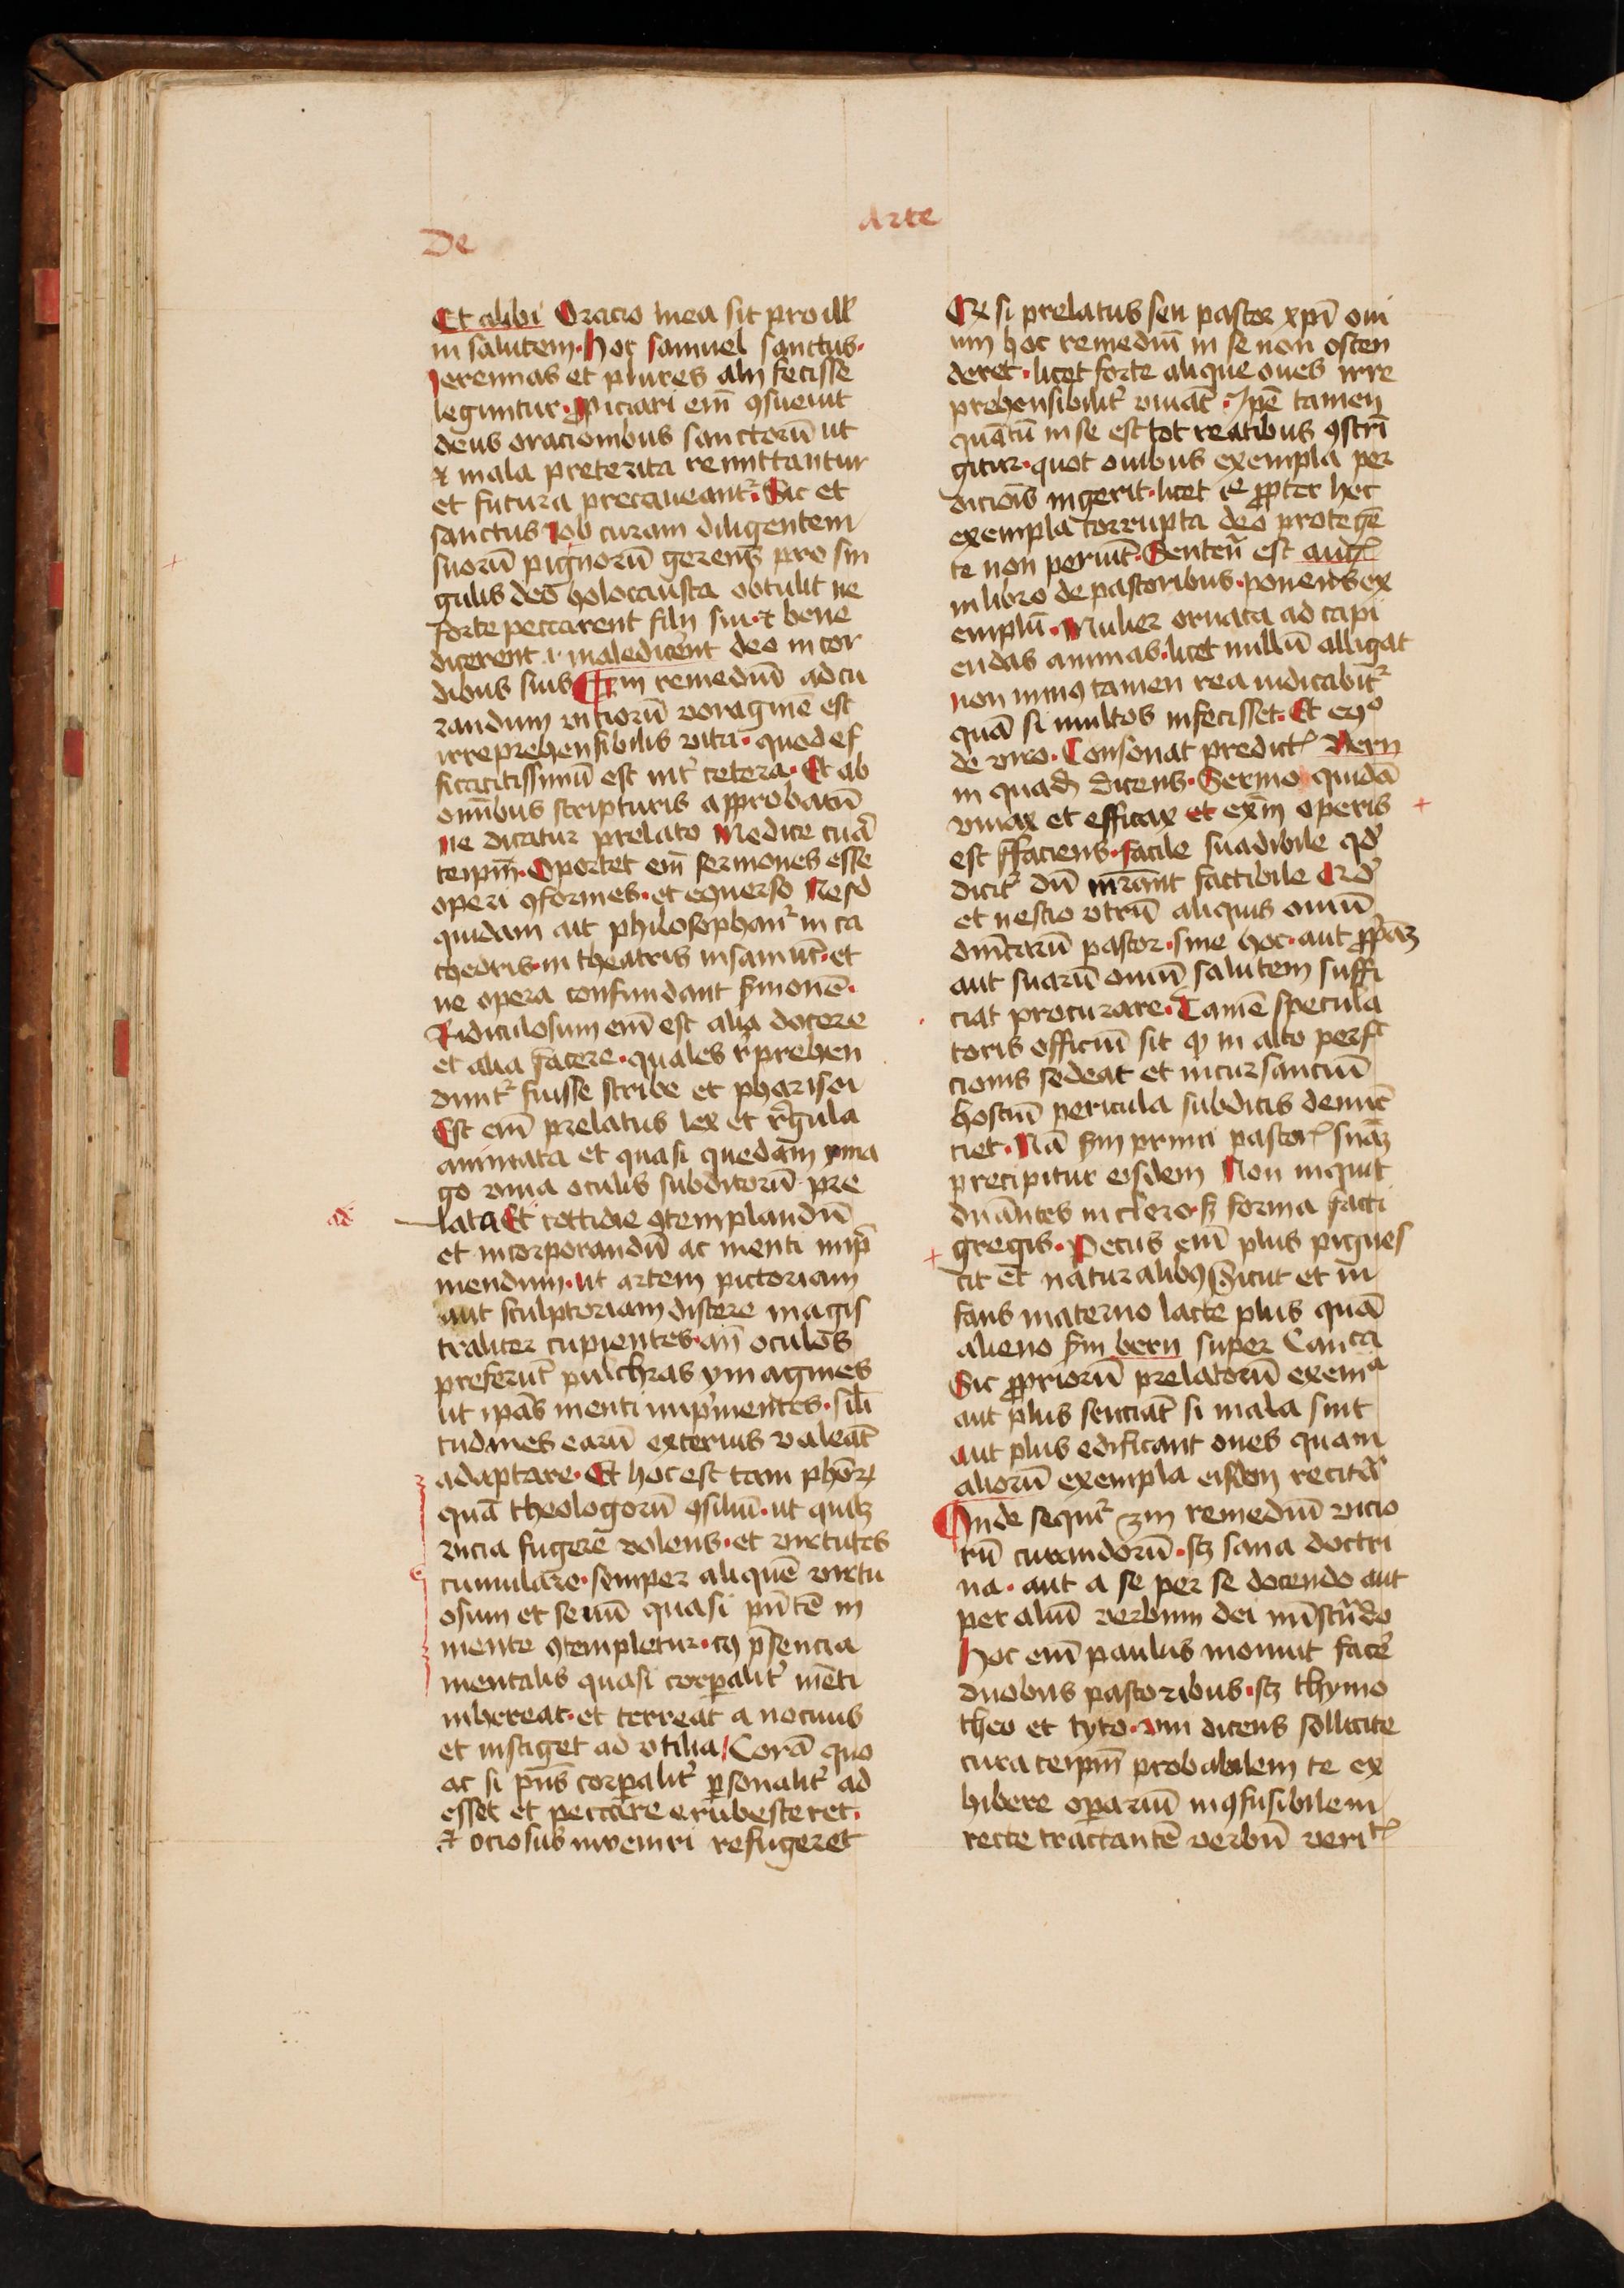 De
arte
Et alibi Oracio mea sit pro ill
in salutem. Hoc samuel sanctus.
Jeremias et plures alij fecisse
leguntur. Piciari em̄ ꝯsueuit
deus oracionibus sanctorū ut
⁊ mala preterita remittantur
et futura precaueant᷑. Sic et
sanctus Job curam diligentem
suorū pignorū gerens pro sin
gulis deo holocausta obtulit ne
forte peccarent filij sui ⁊ bene
dicerent .i. maledicerent deo in cor
dibus suis remediū ad cu
randum viciorū voraginē est
irreprehensibilis vita. quod ef
ficacitissimū est int̉ cetera. Et ab
omībus scripturis approbatū
ne dicatur prelato Medice curā
teipm̄. Oportet em̄ sermones esse
operi ꝯformes. et eꝯuerso
quidam ait philosophant᷑ in ca
thedris. in theatris insaniūt. et
ne opera confundant ẜmonē.
Ridiculosum em̄ est alia docere
et alia facere. quales r̉prehen
dunt᷑ fuisse scribe et pharisei
Est em̄ prelatus lex et r̉gula
animata et quasi quedam yma
go viua oculis subditorū pre
lata Et cottidie ꝯtemplandū
et incorporandū ac menti inp̄
mendum. ut artem pictoriam
aut sculptoriam discere magis
traliter cupientes. an̄ oculos
preferūt pulchras ymagines
ut ipās menti inpͥmentes. sīli
tudines earū exterius valeāt
adaptare. Et hoc est tam ph̄orꝝ
quā theologorū ꝯsiliū. ut quilꝫ
vicia fugere volens. et virtutes
cumulare. semper aliquē virtu
osum et seuū quasi pn̄tē in
mente ꝯtempletur. cꝯ p̄sencia
mentalis quasi corꝑalit̉ mēti
inhereat. et terreat a nociuis
et instiget ad vtilia Corā quo
ac si pn̄s corꝑalit̉ ꝑsonalit̉ ad
esset et peccare erubesceret.
⁊ ociosus inueniri refugeret
si prelatus seu pastor xp̄i oui
um hoc remediū in se non osten
deret. licet forte alique oues irre
prehensibilit̉ viuāt. Ip̄e tamen
quātū in se est tot reatibus ꝯstrī
gitur. quot ouibus exempla per
dicōis ingerit. licet ꝓpter hec
exempla corrupta deo protegē
te non periūt. est aug
in libro de pastoribus. ponens ex
emplū. Mulier ornata ad capi
endas animas. licet nullū alligat
non minꝯ tamen rea iudicabit᷑
quā si multos infecisset. Et
de viro. Consonat predict Bern
in quad dicens. Sermo quidā
viuax et efficax et exm̄ operis
est faciens. facile suadibile qd
dicit᷑ dū factibile
et nescio vtrū aliquis ouiū
dn̄icarū pastor. sine hoc. aut ꝓpͥaꝫ
aut suarū ouiū salutem suffi
ciat procurare. Tamē specula
toris officiū sit ꝙ in alto perfc
cionis sedeat et incursanciū
hostiū pericula subditis denūc
ciet. Nā ẜm primi pastor suaꝫ
precipitur eisdem Non inquit
dn̄antes in clero. sꝫ forma facti
gregis. Petus em̄ plus pigues
cit et naturalibꝯ sicut et in
fans materno lacte plus quā
alieno ẜm bern super Cantica
Sic ꝓpriorū prelatorū exemᵃ
aut plus senciāt si mala sint
aut plus edificant oues quam
aliorū exempla eisdem recitat᷑
Inde sequit᷑ 3m remediū vicio
rū curandorū. scꝫ sana doctri
na. aut a se per se docendo aut
per aliū verbum dei
Hoc em̄ paulus monuit fac̉e
duobus pastoribus. scꝫ thymo
theo et tyto. vni dicens sollicite
cura teipm̄ probabilem te ex
hibere operariū inꝯfusibilem
recte tractantē verbū verit
ad